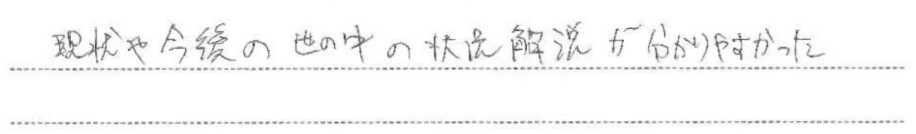 現状や今後の世の中の状況解説が分かりやすかった